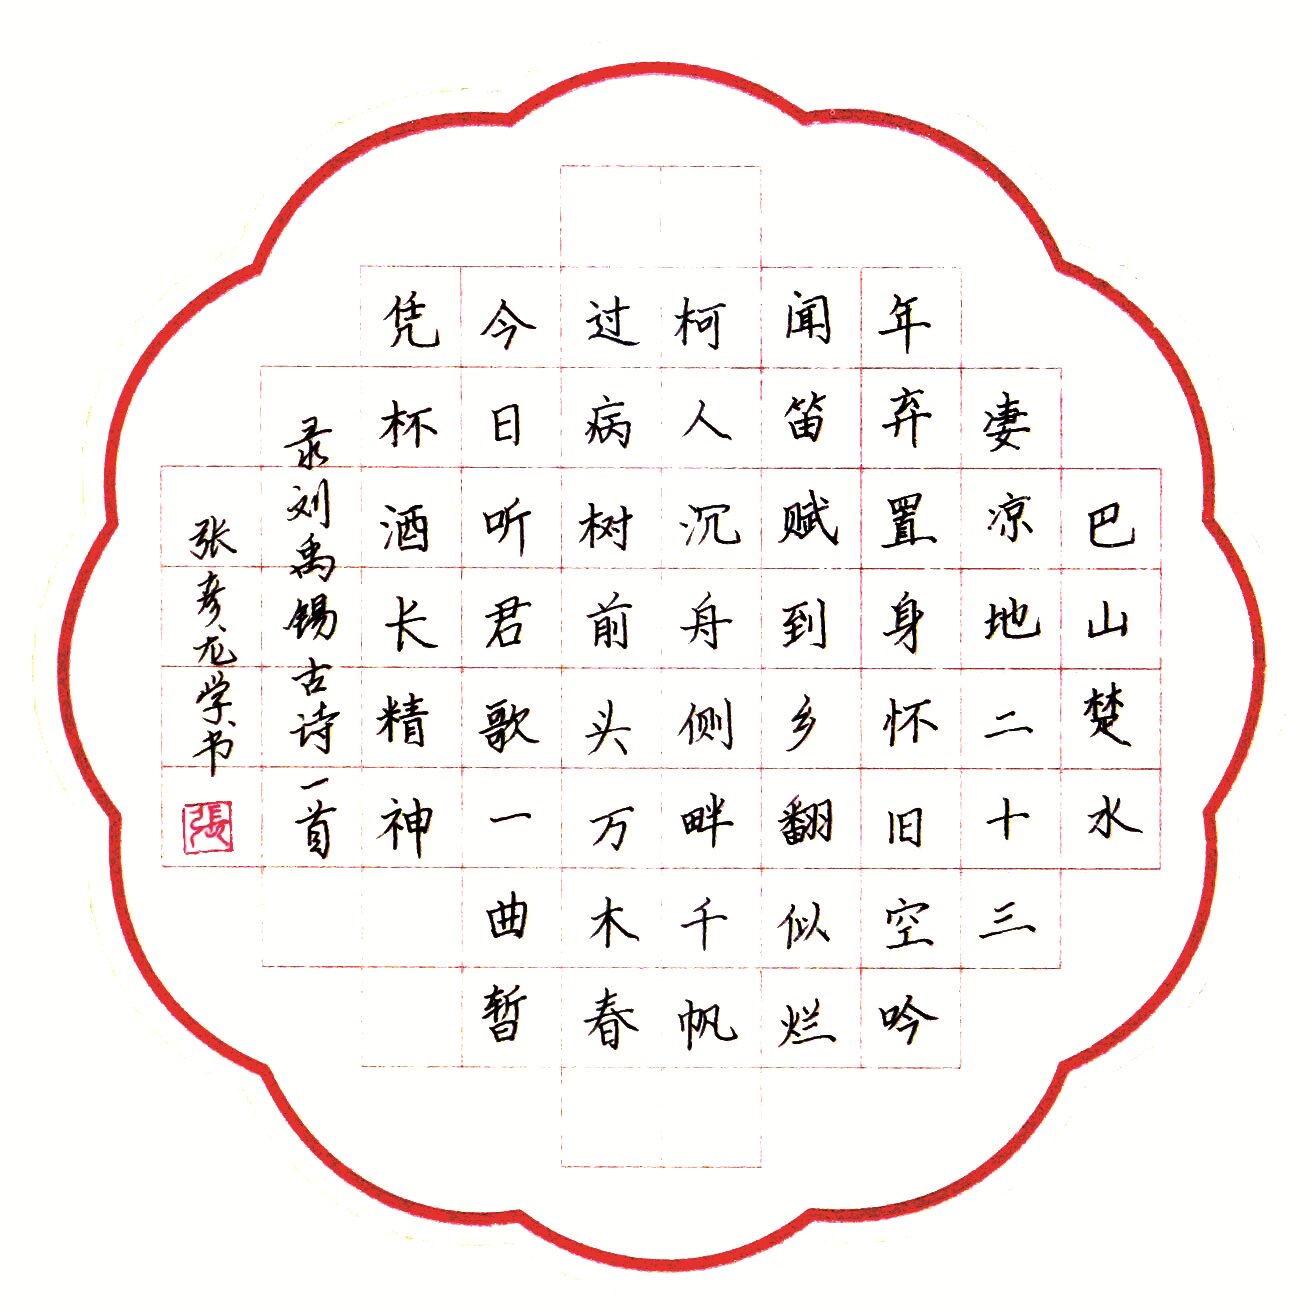 巴山楚水
凄凉地二十三
年弃置身怀旧空吟
闻笛赋到乡翻似烂
柯人沉舟侧畔千帆
过病树前头万木春
今日听君歌一曲暂
凭杯酒长精神
录刘禹锡古诗一首
张彦龙学书
張